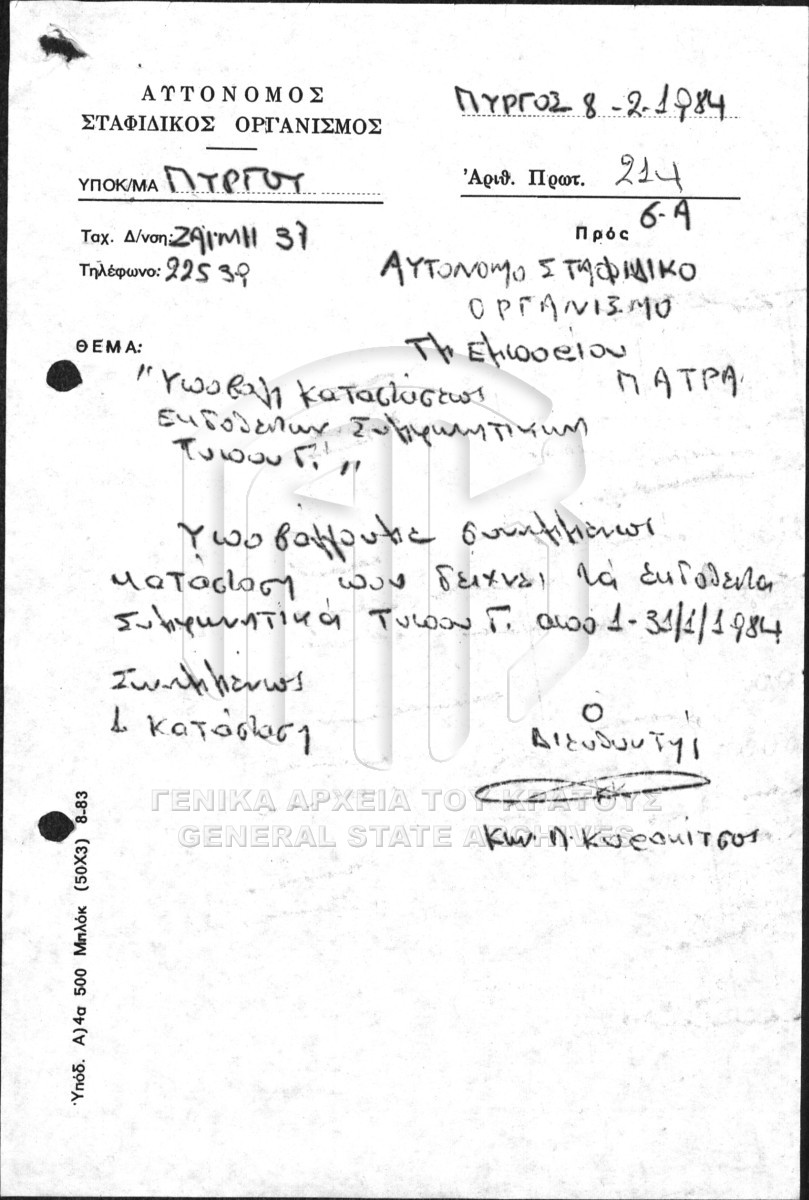 ΑΥΤΟΝΟΜΟΣ
ΣΤΑΦΙΔΙΚΟΣ ΟΡΓΑΝΙΣΜΟΣ
ΥΠΟΚ/ΜΑ ΠΥΡΓΟΥ
Ταχ. Δ/νση: ΖΑΙΜΗ 37
Τηλέφωνο: 22539
ΠΥΡΓΟΣ 8-2-1984
Ἀριθ. Πρωτ. 214
6-Α
Πρός
ΑΥΤΟΝΟΜΟ ΣΤΑΦΙΔΙΚΟ
ΟΡΓΑΝΙΣΜΟ
Τμ Εμπορείου
ΠΑΤΡΑ
ΘΕΜΑ:
"Υποβολή Καταστάσεως
Εκδοθέντων Συμψηφιστικών
Τύπου Γ."
Υποβάλλουμε συνημμένως
κατάσταση που δείχνει τά εκδοθέντα
Τύπου Γ. από 1-31/1/1984
Συνημμένως
1 Κατάσταση
Ο
Διευθυντής
Κων. Π.
ΓΕΝΙΚΑ ΑΡΧΕΙΑ ΤΟΥ ΚΡΑΤΟΥΣ
GENERAL STATE ARCHIVES
Ὑπόδ. Α)4α 500 Μπλόκ (50Χ3) 8-83